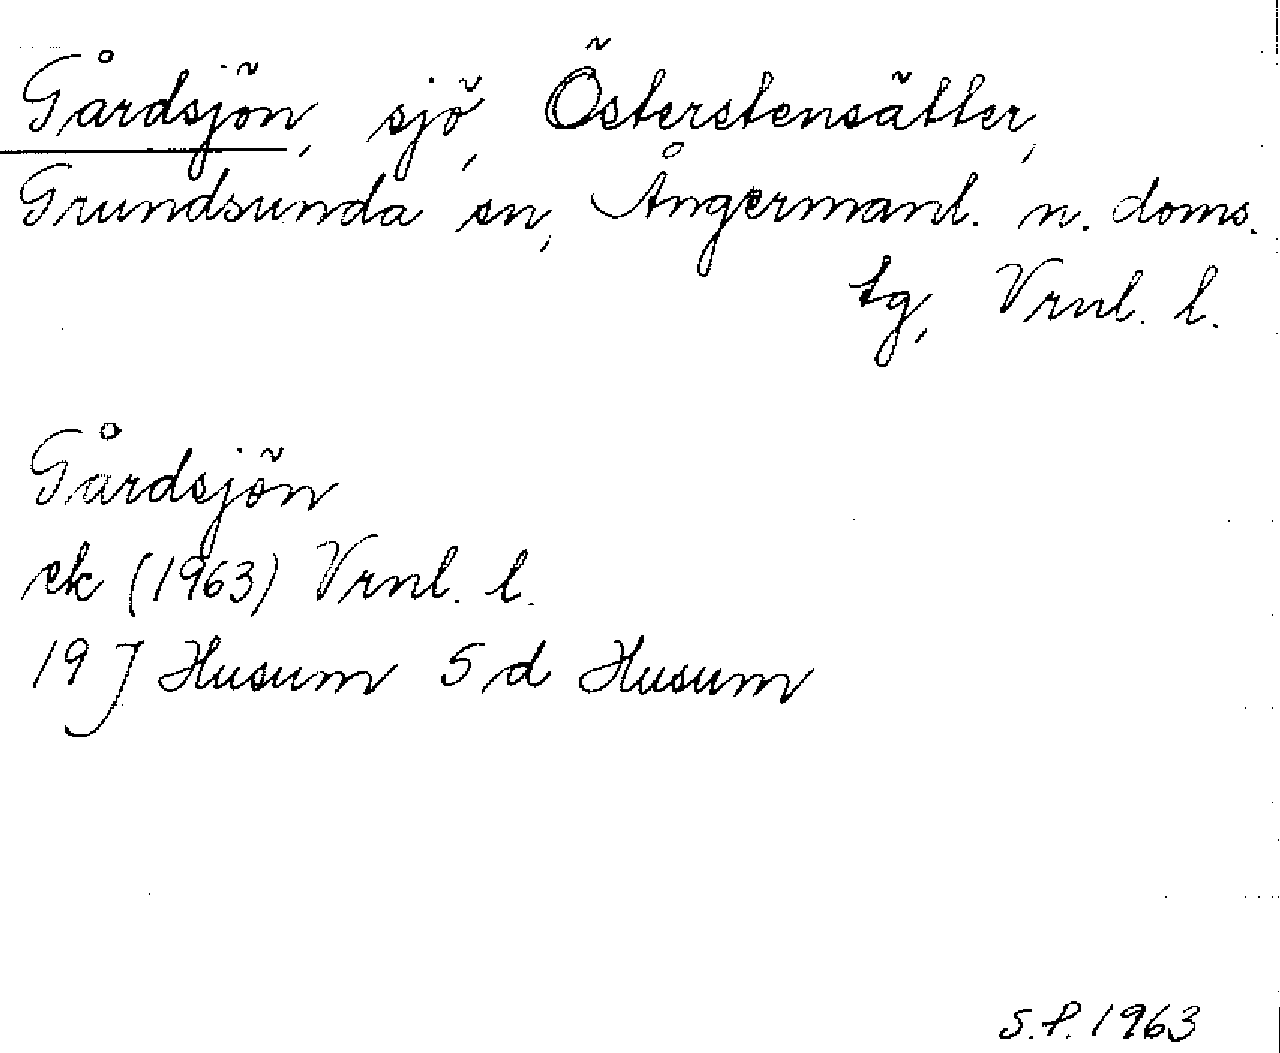 Gårdsjön, sjö, Österstensätter,
Grundsunda sn, Ångermanl. n. doms.
tg, Vrnl. l.
Gårdsjön
ek (1963) Vrnl. l.
19 J Husum 5 d Husum
S.P. 1963